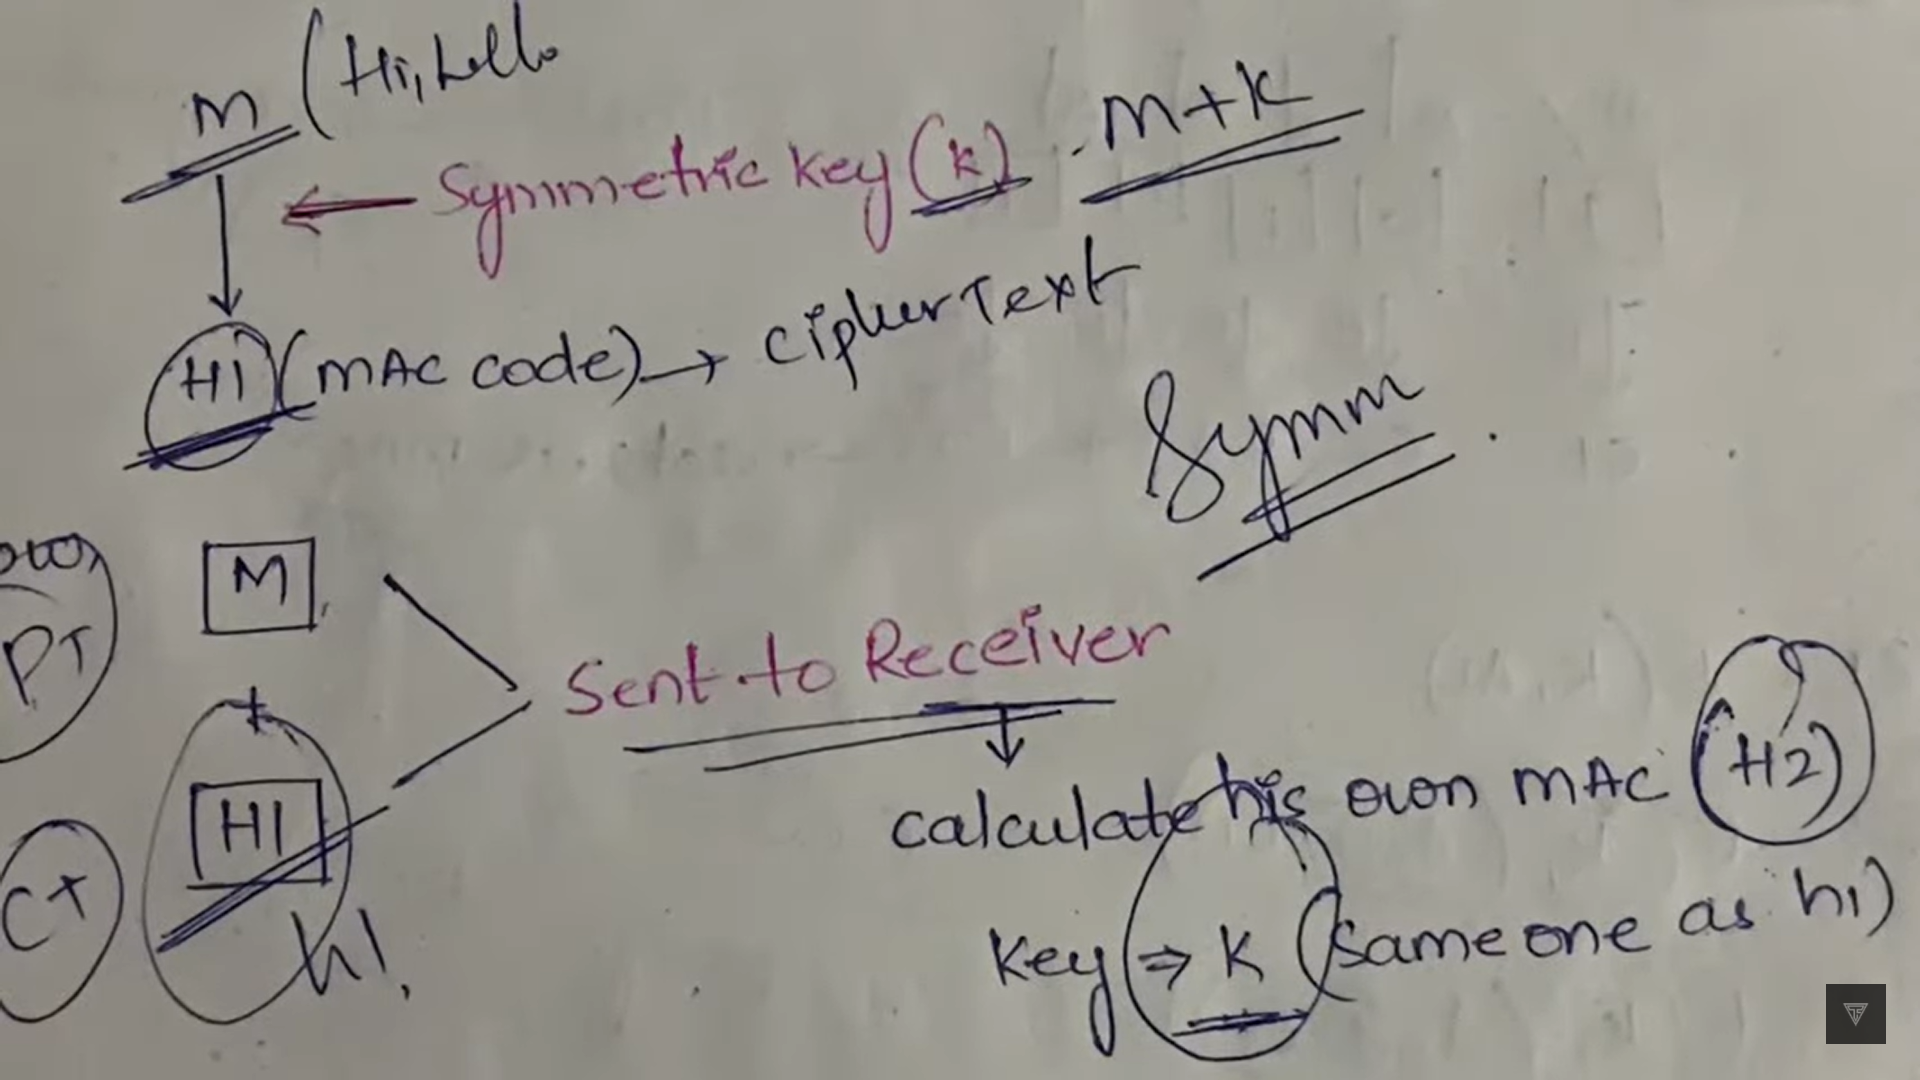 M (Hi, hello
← Symmetric key (k) . M+K
H1 (MAC code) → cipher Text
Symm
M
PT
Sent to Receiver
+
H1
calculate his own MAC (H2)
CT
h1
key ⇒ K (same one as h1)